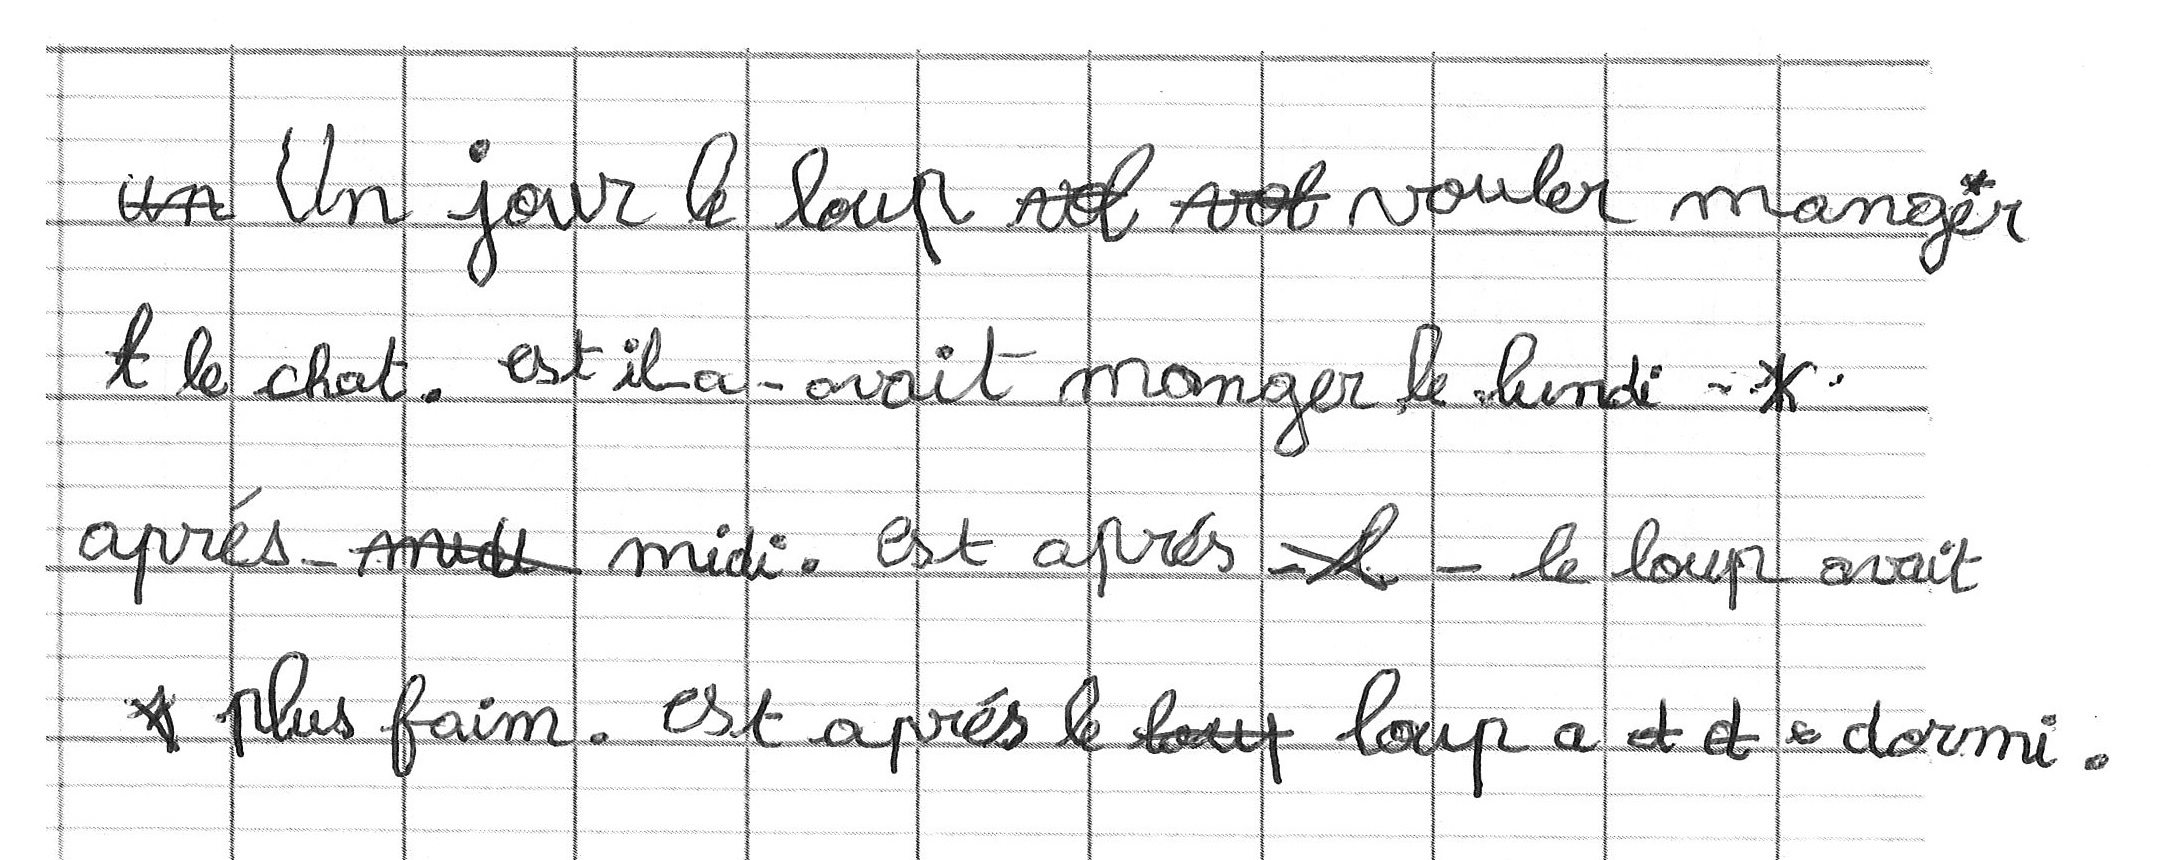 un Un jour le loup vol vol vouler manger
t le chat. est il a-avait manger le lundi -
aprés- midi midi. est aprés - l - le loup avait
plus faim. est aprés le loup loup a d d dormi.